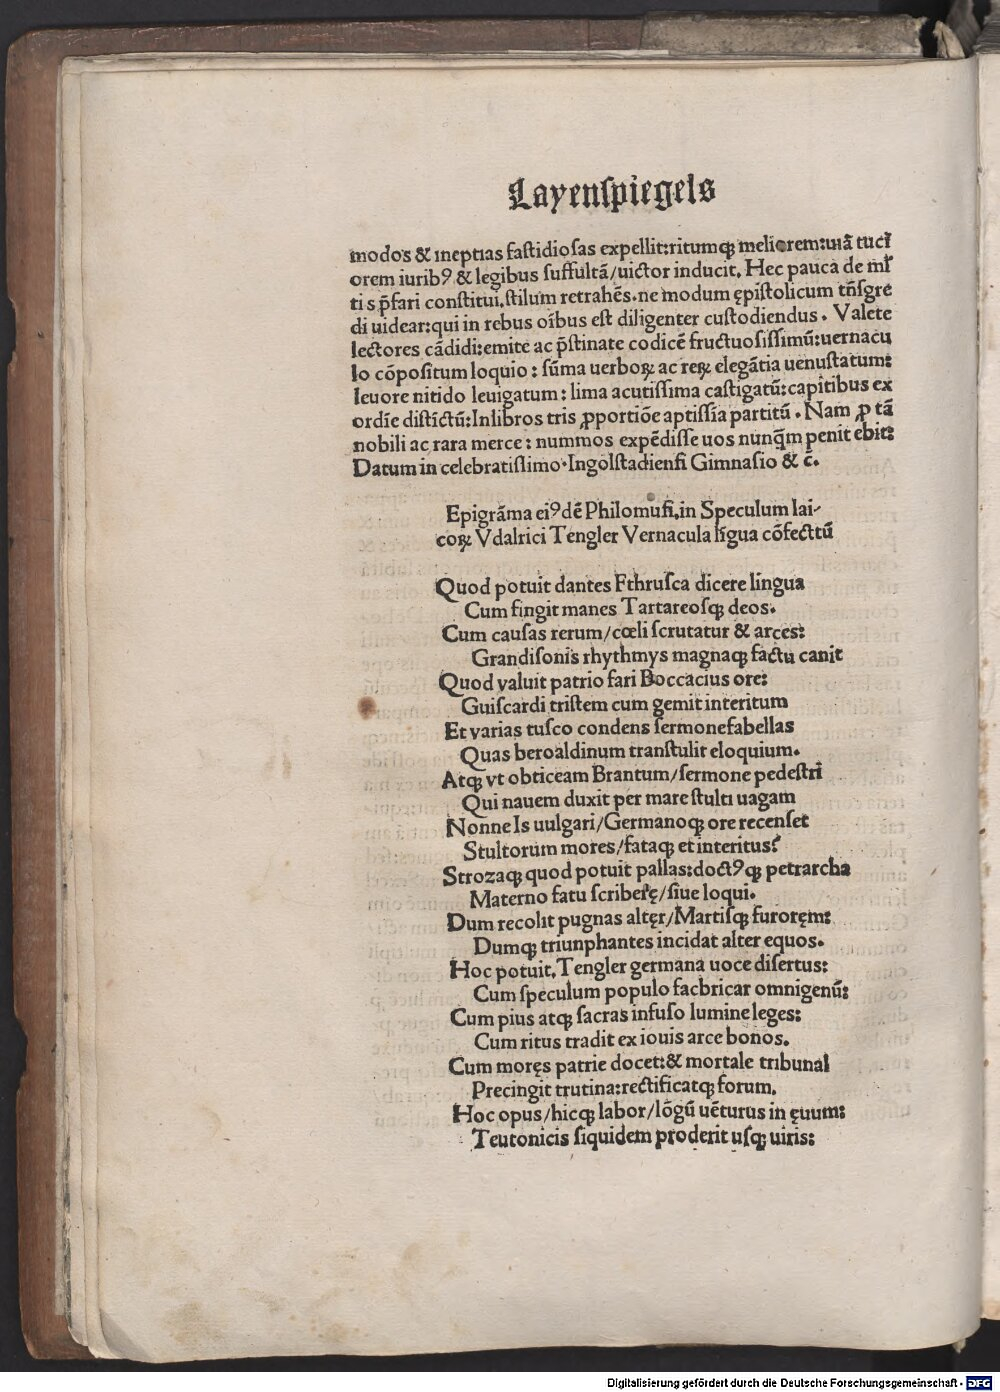 Layenſpiegels
modos & ineptias faſtidioſas expellit:ritumqꝫ meliorem:uiā tuci
orem iuribꝰ & legibus ſuffultā/uictor inducit. Hec pauca de ml̄
ti s p̄fari conſtitui.ſtilum retrahēs.ne modum ępiſtolicum tn̄ſgre
di uidear:qui in rebus oībus eſt diligenter cuſtodiendus. Valete
lectores cādidi:emite ac p̄ſtinate codicē fructuoſiſſimū:uernacu
lo cōpoſitum loquio: ſūma uerboꝝ ac reꝝ elegātia uenuſtatum:
leuore nitido leuigatum: lima acutiſſima caſtigatū:capitibus ex
ordīe diſtīctū:Inlibros tris ꝓportiōe aptiſſīa partitū. Nam ꝓ tā
nobili ac rara merce: nummos expēdiſſe uos nunq̄m penit ebit:
Datum in celebratiſſimo·Ingolſtadienſi Gimnaſio & c̄.
Epigrāma eiꝰ dē Philomuſi.in Speculum lai-
coꝝ Vdalrici Tengler Vernacula līgua cōfecttū
Quod potuit dantes Fthruſca dicere lingua
Cum fingit manes Tartareoſqꝫ deos.
Cum cauſas rerum/cœli ſcrutatur & arces:
Grandiſonis rhythmys magnaqꝫ factu canit
Quod valuit patrio fari Boccacius ore:
Guiſcardi triſtem cum gemit interitum
Et varias tuſco condens ſermonefabellas
Quas beroaldinum tranſtulit eloquium.
Atqꝫ vt obticeam Brantum/ſermone pedeſtri
Qui nauem duxit per mare ſtulti uagam
Nonne Is uulgari/Germanoqꝫ ore recenſet
Stultorum mores/fataqꝫ et interitus?
Strozaqꝫ quod potuit pallas:doctꝰqꝫ petrarcha
Materno fatu ſcriberę/ſiue loqui.
Dum recolit pugnas altęr/Martiſqꝫ furoręm:
Dumqꝫ triunphantes incidat alter equos.
Hoc potuit.Tengler germana uoce diſertus:
Cum ſpeculum populo facbricar omnigenū:
Cum pius atqꝫ ſacras infuſo lumine leges:
Cum ritus tradit ex iouis arce bonos.
Cum moręs patrie docet:& mortale tribunal
Precingit trutina:rectificatqꝫ forum.
Hoc opus/hicqꝫ labor/lōgū uēturus in ęuum:
Teutonicis ſiquidem proderit uſqꝫ uiris:
Digitalisierung gefördert durch die Deutsche Forschungsgemeinschaft - DFG